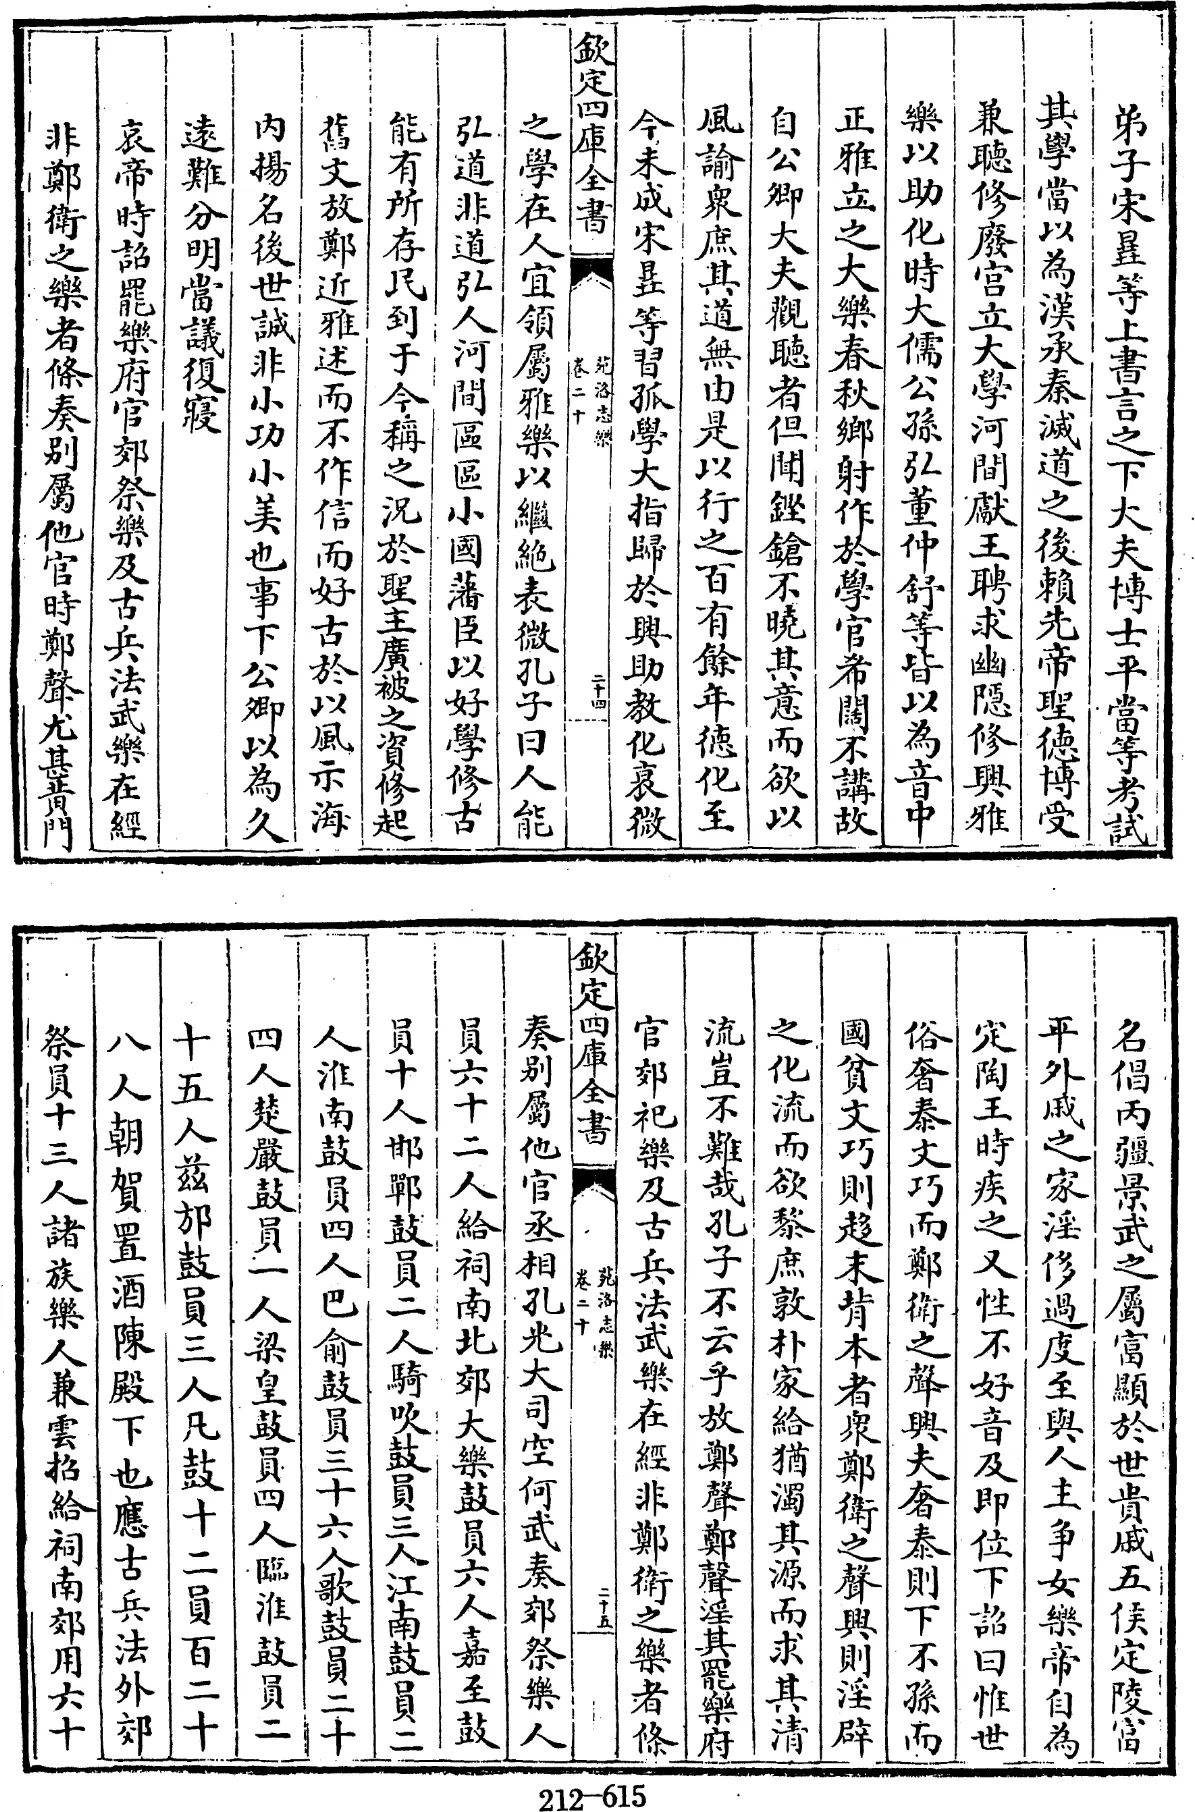 弟子宋㬅等上書言之下大夫博士平當等考試
其學當以為漢承秦滅道之後賴先帝聖德博受
兼聽修廢宫立大學河間獻王聘求幽隱修興雅
樂以助化時大儒公孫弘董仲舒等皆以為音中
正雅立之大樂春秋鄉射作於學官希闊不講故
自公卿大夫觀聽者但聞鏗鎗不曉其意而欲以
風諭衆庶其道無由是以行之百有餘年德化至
今未成宋㬅等習孤學大指歸於興助教化衰微
欽定四庫全書
苑洛志樂
卷二十
二十四
之學在人宜領屬雅樂以繼絶表微孔子曰人能
弘道非道弘人河間區區小國藩臣以好學修古
能有所存民到于今稱之況於聖主廣被之資修起
舊文放鄭近雅述而不作信而好古於以風示海
内揚名後世誠非小功小美也事下公卿以為久
逺難分明當議復寢
哀帝時詔罷樂府官郊祭樂及古兵法武樂在經
非鄭衛之樂者條奏别屬他官時鄭聲尤甚黄門
名倡丙疆景武之屬富顯於世貴戚五侯定陵富
平外戚之家淫侈過度至與人主争女樂帝自為
定陶王時疾之又性不好音及即位下詔曰惟世
俗奢泰文巧而鄭衛之聲興夫奢泰則下不孫而
國貧文巧則趍末背本者衆鄭衛之聲興則淫辟
之化流而欲黎庶敦朴家給猶濁其源而求其清
流豈不難哉孔子不云乎放鄭聲鄭聲淫其罷樂府
官郊祀樂及古兵法武樂在經非鄭衛之樂者條
欽定四庫全書
苑洛志樂
卷二十
二十五
奏别屬他官丞相孔光大司空何武奏郊祭樂人
員六十二人給祠南北郊大樂鼓員六人嘉至鼓
員十人邯鄲鼓員二人騎吹鼓員三人江南鼓員二
人淮南鼓員四人巴俞鼓員三十六人歌鼓員二十
四人楚嚴鼓員一人梁皇鼓員四人臨淮鼓員二
十五人兹邡鼓員三人凡鼓十二員百二十
八人朝賀置酒陳殿下也應古兵法外郊
祭員十三人諸族樂人兼雲招給祠南郊用六十
212-615